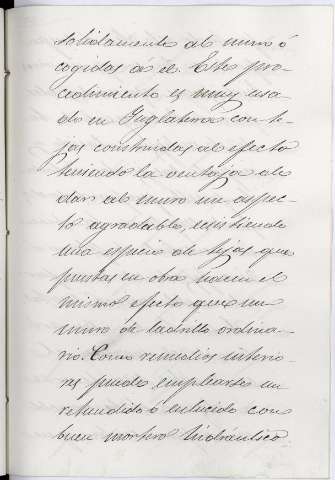 solidamente al muro ó
cogidas a el. Este pro-
cedimiento es muy usa-
do en Inglaterra con te-
jas construidas al efecto
teniendo la ventaja de
dar al muro un aspec-
to agradable, existiendo
una especie de tejas que
puestas en obra hacen el
mismo efecto que un
muro de ladrillo ordina-
rio. Como remedios interio-
res puede emplearse un
rehundido ó enlucido con
buen mortero hidráulico